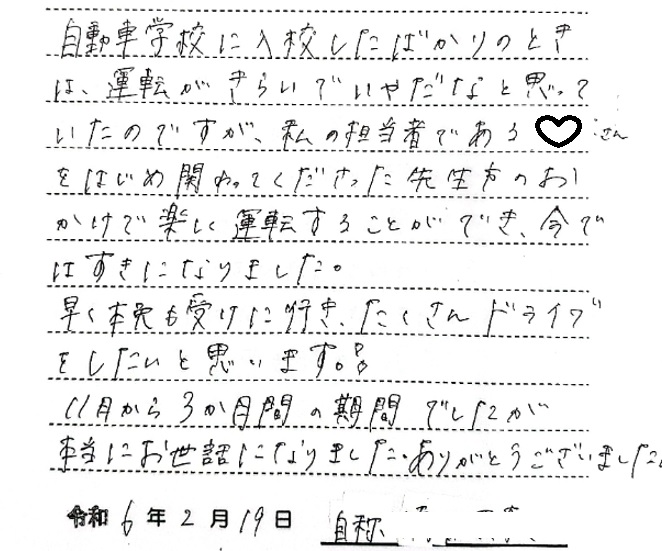 自動車学校に入校したばかりのとき
は、運転がきらいでいやだなと思って
いたのですが、私の担当者である♡さん
をはじめ関わってくださった先生方のお
かげで楽しく運転することができ、今で
はすきになりました。
早く本免も受けに行き、たくさんドライブ
をしたいと思います。
11月から3か月間の期間でしたが
本当にお世話になりました。ありがとうございました。
令和6年2月19日 自称